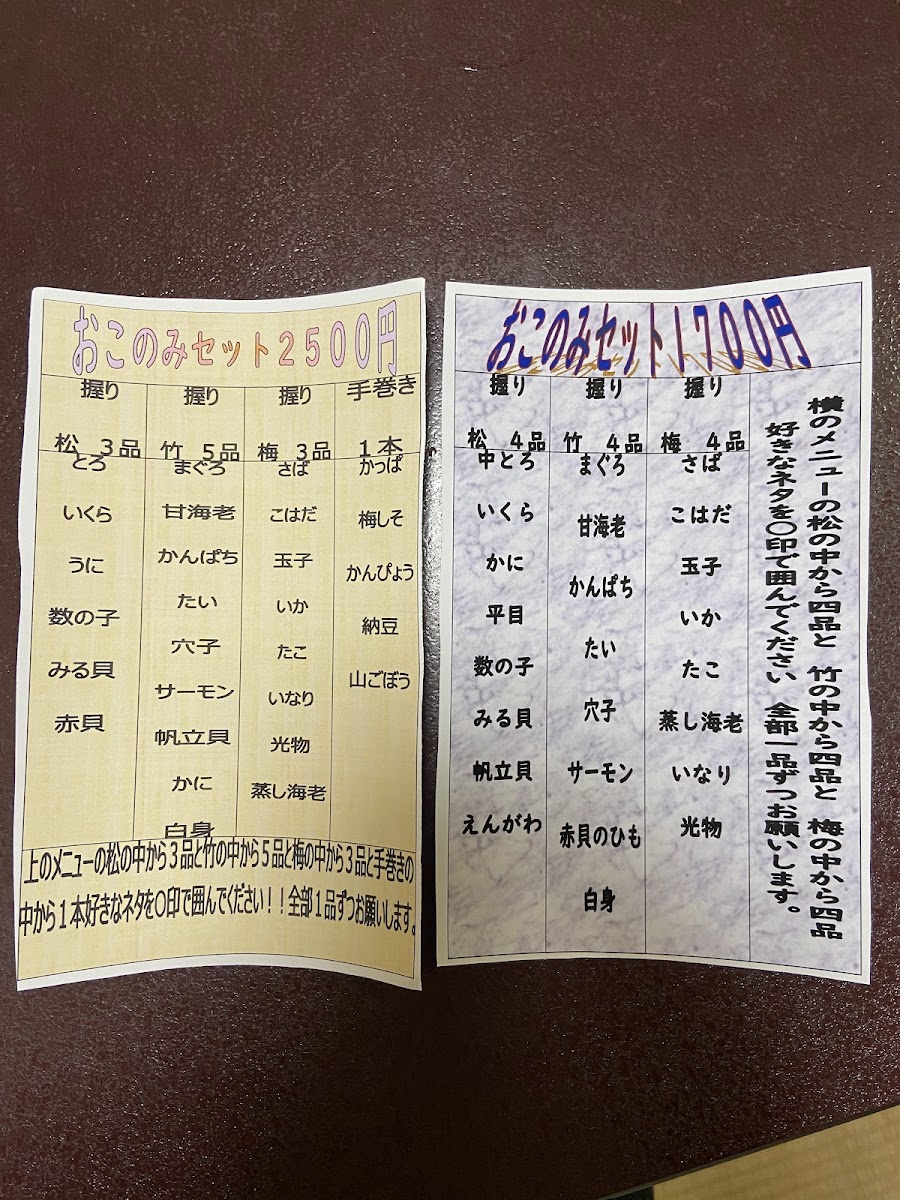 おこのみセット2500円
握り 握り 握り 手巻き
松 3品 竹 5品 梅 3品 1本
とろ まぐろ さば かっぱ
いくら 甘海老 こはだ 梅しそ
うに かんぱち 玉子 かんぴょう
数の子 たい いか 納豆
みる貝 穴子 たこ 山ごぼう
赤貝 サーモン いなり
帆立貝 光物
かに 蒸し海老
白身
上のメニューの松の中から3品と竹の中から5品と梅の中から3品と手巻きの
中から1本好きなネタを〇印で囲んでください!!全部1品ずつお願いします。
おこのみセット1700円
握り 握り 握り
松 4品 竹 4品 梅 4品
中とろ まぐろ さば
いくら 甘海老 こはだ
かに かんぱち 玉子
平目 たい いか
数の子 穴子 たこ
みる貝 サーモン 蒸し海老
帆立貝 赤貝のひも いなり
えんがわ 白身 光物
横のメニューの松の中から四品と 竹の中から四品と 梅の中から四品
好きなネタを〇印で囲んでください 全部一品ずつお願いします。